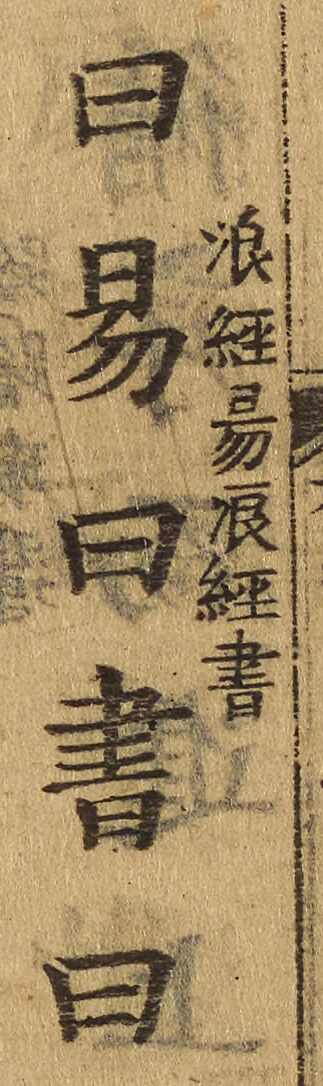 浪經易浪經書
曰易曰書曰